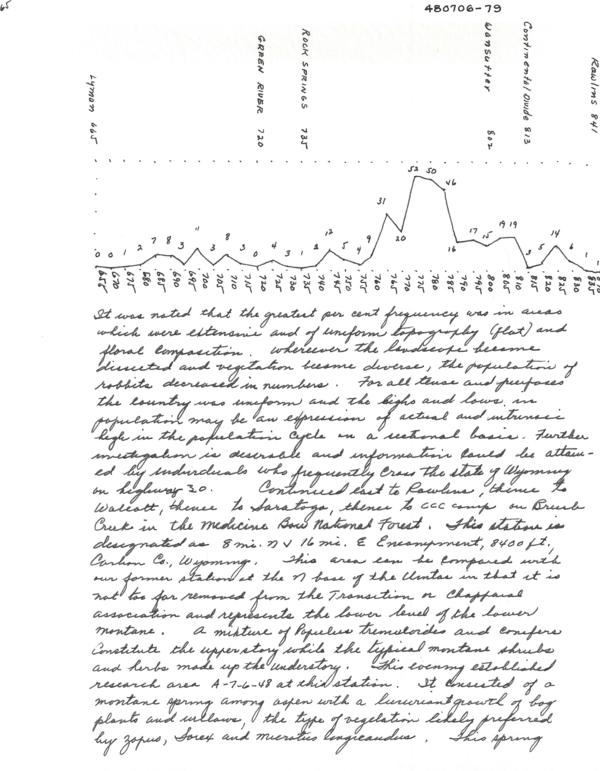 65
480706-79
Lyman 665
GREEN RIVER 720
ROCK SPRINGS 735
Wamsutter 802
Continental Divide 813
Rawlins 841
52 50
46
31
20
0 0 1 2 7 8 3 11 3 8 3 0 4 3 1 2 12 5 4 9
16 17 15 19 19 3 5 14 6 1 1
665 670 675 680 685 690 695 700 705 710 715 720 725 730 735 740 745 750 755 760 765 770 775 780 785 790 795 800 805 810 815 820 825 830 835 840
It was noted that the greatest per cent frequency was in areas
which were extensive and of uniform topography (flat) and
floral composition. Wherever the landscape became
dissected and vegetation became diverse, the population of
rabbits decreased in numbers. For all tense and purposes
the country was uniform and the highs and lows in
population may be an expression of actual and intrinsic
high in the population cycle on a sectional basis. Further
investigation is desirable and information could be attain-
ed by individuals who frequently cross the state of Wyoming
on highway 30. Continued east to Rawlins, thence to
Walcott, thence to Saratoga, thence to CCC camp on Brush
Creek in the Medicine Bow National Forest. This station is
designated as 8 mi. N & 16 mi. E Encampment, 8400 ft.,
Carbon Co., Wyoming. This area can be compared with
our former station at the N base of the Uintas in that it is
not too far removed from the Transition or Chapparal
association and represents the lower level of the lower
montane. A mixture of Populus tremuloides and conifers
constitute the upperstory while the typical montane shrubs
and herbs made up the understory. This evening established
research area A-7-6-48 at this station. It consisted of a
montane spring among aspen with a luxuriant growth of bog
plants and willows, the type of vegetation likely preferred
by zapus, Sorex and microtus longicaudus. This spring